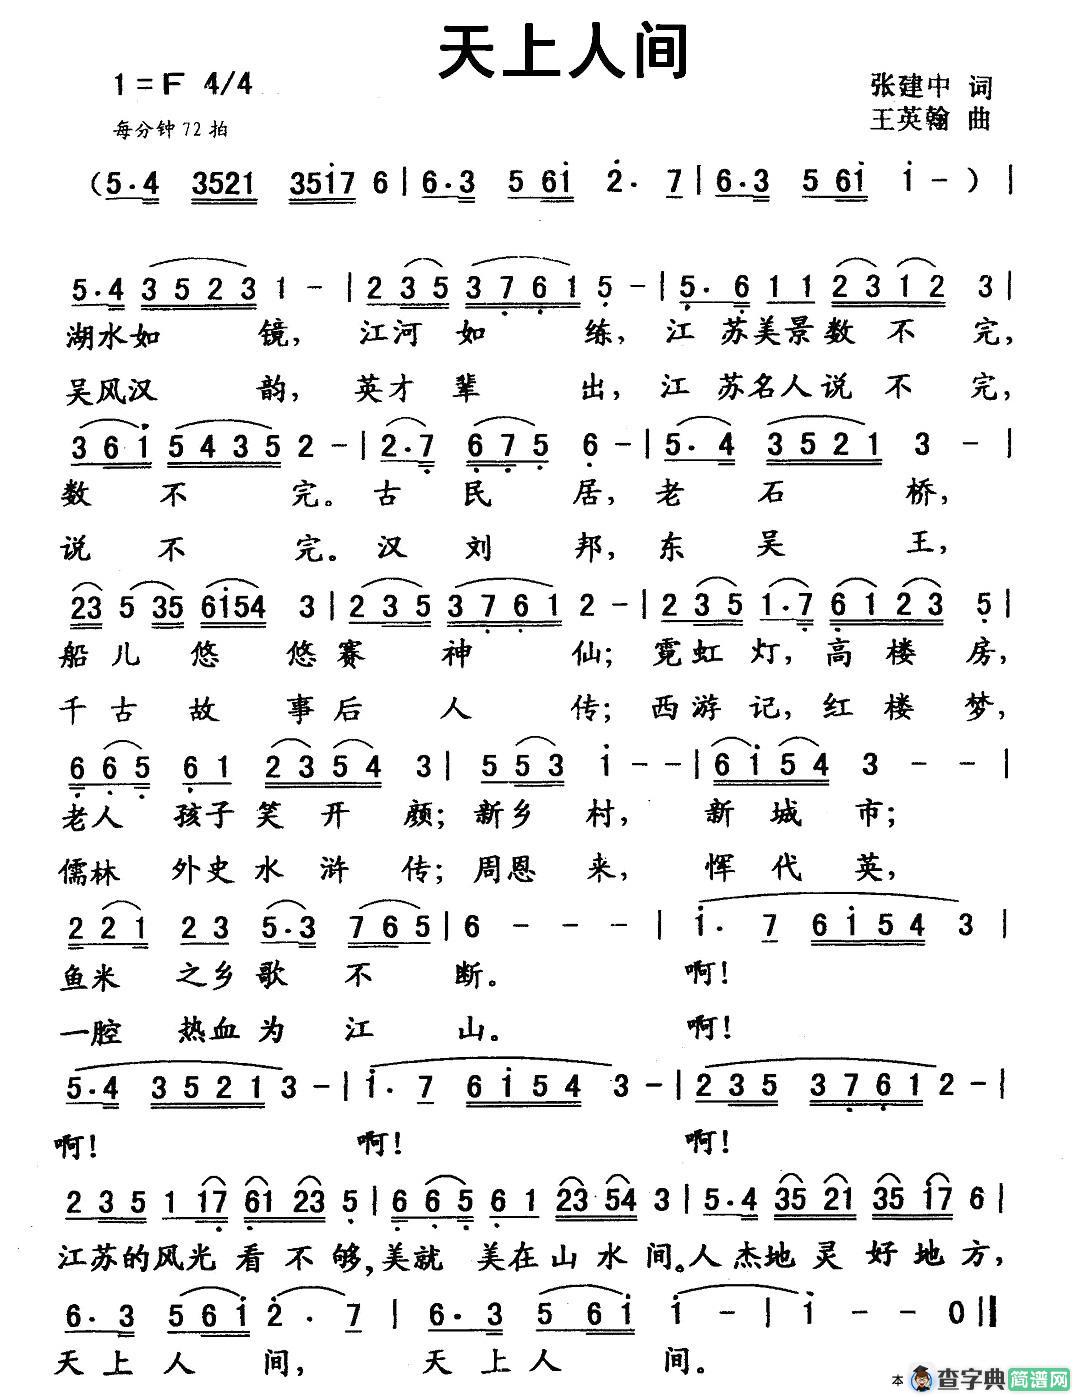 天上人间
1=F 4/4
张建中 词
每分钟72拍
王英翰 曲
(5·4 3521 35i7 6 | 6·3 5 6i 2· 7 | 6·3 5 6i i - ) |
5·4 3 5 2 3 1 - | 2 3 5 3 7 6 1 5 - | 5· 6 1 1 2 3 1 2 3 |
湖水如 镜, 江河 如 练, 江 苏美景数 不 完,
吴风汉 韵, 英才 辈 出, 江 苏名人说 不 完,
3 6 i 5 4 3 5 2 - | 2·7 6 7 5 6 - | 5· 4 3 5 2 1 3 - |
数 不 完。古 民 居, 老 石 桥,
说 不 完。汉 刘 邦, 东 吴 王,
23 5 35 6i54 3 | 2 3 5 3 7 6 1 2 - | 2 3 5 1·7 6 1 2 3 5 |
船 儿 悠 悠赛 神 仙; 霓虹 灯, 高 楼 房,
千 古 故 事后 人 传; 西游 记, 红 楼 梦,
6 6 5 6 1 2 3 5 4 3 | 5 5 3 i - - | 6 i 5 4 3 - - |
老人 孩子 笑 开 颜; 新乡 村, 新 城 市;
儒林 外史 水 浒 传; 周恩 来, 恽 代 英,
2 2 1 2 3 5·3 7 6 5 | 6 - - - | i· 7 6 i 5 4 3 |
鱼米 之乡 歌 不 断。 啊!
一腔 热血 为 江 山。 啊!
5·4 3 5 2 1 3 - | i· 7 6 i 5 4 3 - | 2 3 5 3 7 6 1 2 - |
啊! 啊! 啊!
2 3 5 1 17 61 23 5 | 6 6 5 6 1 23 54 3 | 5·4 35 21 35 i7 6 |
江苏的风光 看 不 够, 美就 美在 山 水 间。人 杰地 灵 好 地 方,
6·3 5 6 i 2· 7 | 6·3 5 6 i i - | i - - 0 ‖
天 上 人 间, 天 上 人 间。
本 查字典 简谱网